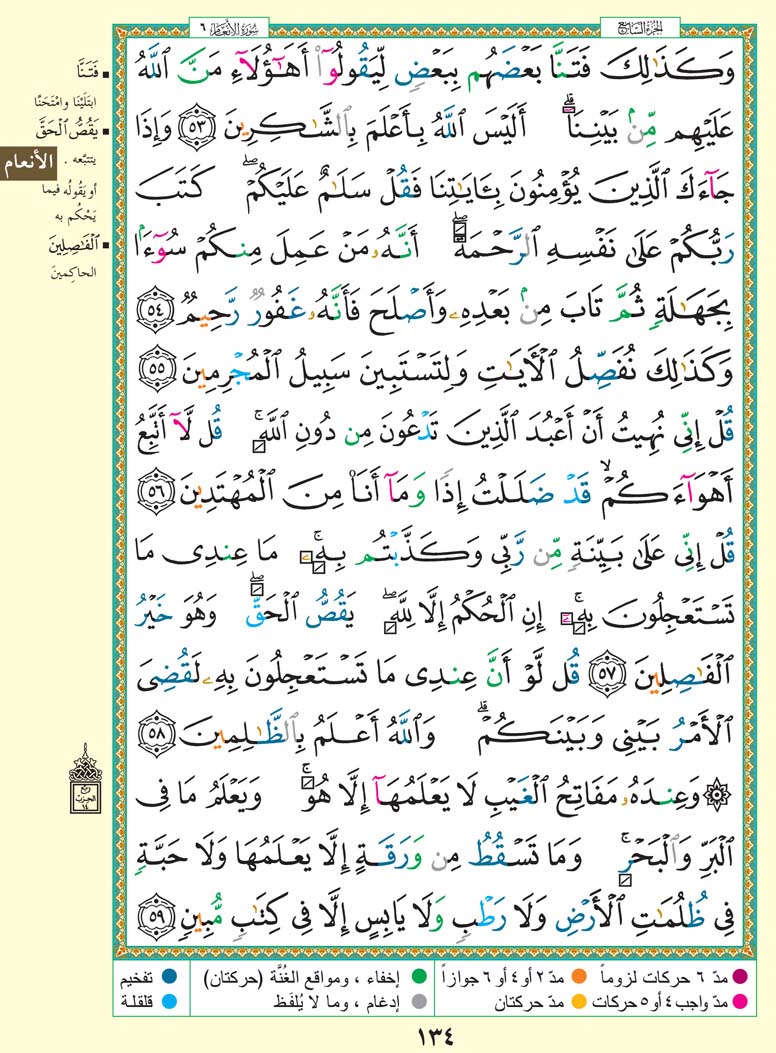 سُورَةُ الأَنعَام ٦
الجُزءُ السَّابِعُ
وَكَذَٰلِكَ فَتَنَّا بَعْضَهُم بِبَعْضٍ لِّيَقُولُوٓا۟ أَهَـٰٓؤُلَآءِ مَنَّ ٱللَّهُ
عَلَيْهِم مِّنۢ بَيْنِنَآ ۗ أَلَيْسَ ٱللَّهُ بِأَعْلَمَ بِٱلشَّـٰكِرِينَ ٥٣ وَإِذَا
جَآءَكَ ٱلَّذِينَ يُؤْمِنُونَ بِـَٔايَـٰتِنَا فَقُلْ سَلَـٰمٌ عَلَيْكُمْ ۖ كَتَبَ
رَبُّكُمْ عَلَىٰ نَفْسِهِ ٱلرَّحْمَةَ ۖ أَنَّهُۥ مَنْ عَمِلَ مِنكُمْ سُوٓءًۢا
بِجَهَـٰلَةٍ ثُمَّ تَابَ مِنۢ بَعْدِهِۦ وَأَصْلَحَ فَأَنَّهُۥ غَفُورٌ رَّحِيمٌ ٥٤
وَكَذَٰلِكَ نُفَصِّلُ ٱلْـَٔايَـٰتِ وَلِتَسْتَبِينَ سَبِيلُ ٱلْمُجْرِمِينَ ٥٥
قُلْ إِنِّى نُهِيتُ أَنْ أَعْبُدَ ٱلَّذِينَ تَدْعُونَ مِن دُونِ ٱللَّهِ ۚ قُل لَّآ أَتَّبِعُ
أَهْوَآءَكُمْ ۙ قَدْ ضَلَلْتُ إِذًا وَمَآ أَنَا۠ مِنَ ٱلْمُهْتَدِينَ ٥٦
قُلْ إِنِّى عَلَىٰ بَيِّنَةٍ مِّن رَّبِّى وَكَذَّبْتُم بِهِۦ ۚ مَا عِندِى مَا
تَسْتَعْجِلُونَ بِهِۦٓ ۚ إِنِ ٱلْحُكْمُ إِلَّا لِلَّهِ ۖ يَقُصُّ ٱلْحَقَّ ۖ وَهُوَ خَيْرُ
ٱلْفَـٰصِلِينَ ٥٧ قُل لَّوْ أَنَّ عِندِى مَا تَسْتَعْجِلُونَ بِهِۦ لَقُضِىَ
ٱلْأَمْرُ بَيْنِى وَبَيْنَكُمْ ۗ وَٱللَّهُ أَعْلَمُ بِٱلظَّـٰلِمِينَ ٥٨
۞ وَعِندَهُۥ مَفَاتِحُ ٱلْغَيْبِ لَا يَعْلَمُهَآ إِلَّا هُوَ ۚ وَيَعْلَمُ مَا فِى
ٱلْبَرِّ وَٱلْبَحْرِ ۚ وَمَا تَسْقُطُ مِن وَرَقَةٍ إِلَّا يَعْلَمُهَا وَلَا حَبَّةٍ
فِى ظُلُمَـٰتِ ٱلْأَرْضِ وَلَا رَطْبٍ وَلَا يَابِسٍ إِلَّا فِى كِتَـٰبٍ مُّبِينٍ ٥٩
▪ فَتَنَّا
ابتَلَيْنا وامْتَحَنَّا
▪ يَقُصُّ الْحَقَّ
يتتبَّعه .
أو يَقُولُه فيما
يَحْكُم به
▪ الْفَاصِلِينَ
الحاكِمينَ
الأنعام
ربع
الحزب
١٤
● مدّ ٦ حركات لزوماً ● مدّ ٢ أو ٤ أو ٦ جوازاً ● إخفاء ، ومواقع الغُنَّة (حركتان) ● تفخيم
● مدّ واجب ٤ أو ٥ حركات ● مدّ حركتان ● إدغام ، وما لا يُلفَظ ● قلقلة
١٣٤